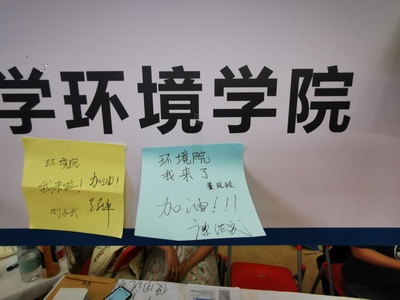 学环境学院
环境院
我来啦！加油！
环境院
我来了
加油！！！